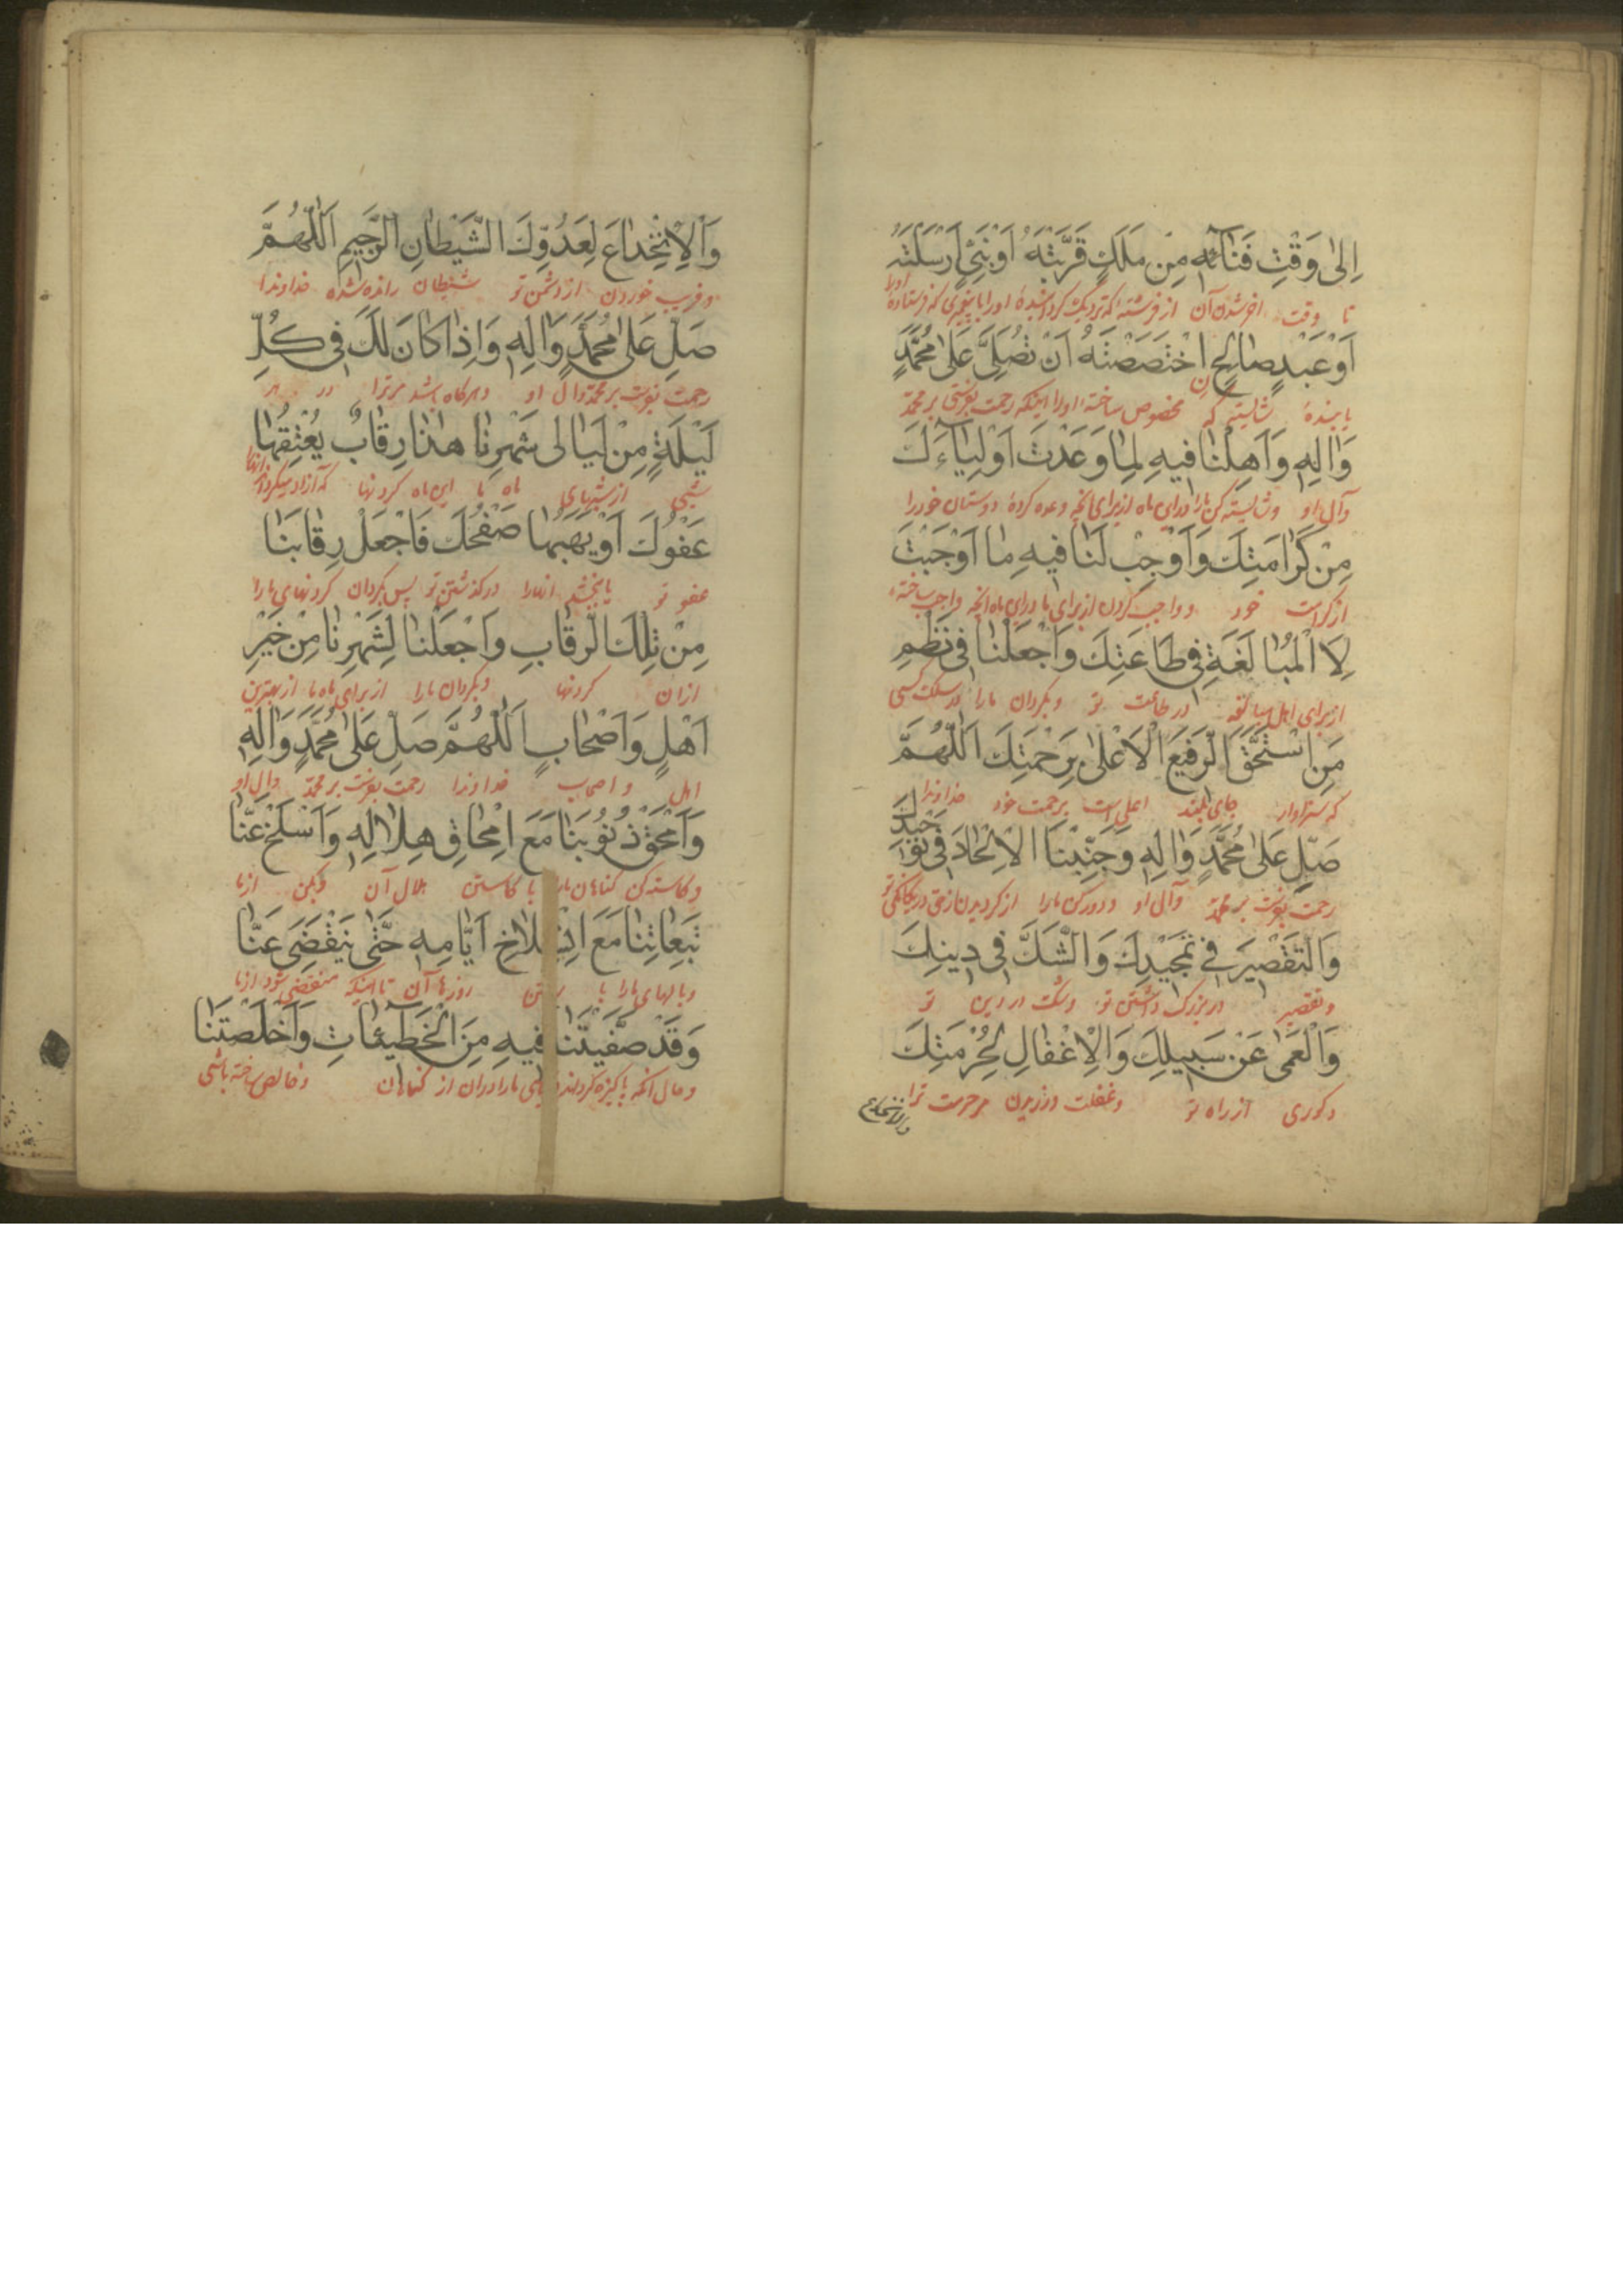 اِلىٰ وَقْتِ فَنٰآئِهِ مِنْ مَلَكٍ قَرَّبْتَهُ اَوْنَبِيٍّ اَرْسَلْتَهُ
تا وقت اخرشدن آن از فرشتهٔ که نزدیک کردانیدهٔ اورا یا پیغمبری که فرستادهٔ اورا
اَوْعَبْدٍ صٰالِحٍ اخْتَصَصْتَهُ اَنْ تُصَلِّىَ عَلىٰ مُحَمَّدٍ
یا بندهٔ شایسته که مخصوص ساختهٔ اورا اینکه رحمت بفرستی بر محمّد
وَاٰلِهِ وَاَهِلْنٰا فيهِ لِمٰا وَعَدْتَ اَوْلِيٰآءَكَ
وآل او وشایسته کن مارا درای ماه ازبرای انچه وعده کردهٔ دوستان خودرا
مِنْ كَرٰامَتِكَ وَاَوْجِبْ لَنٰا فيهِ مٰا اَوْجَبْتَ
از کرامت خود وواجب کردان ازبرای ما درای ماه انچه واجب ساختهٔ
لِاَ الْمُبٰالَغَةِ فى طٰاعَتِكَ وَاجْعَلْنٰا فى نَظْمِ
ازبرای اهل مبالغه در طاعت تو وبکردان مارا در سلک کسی
مَنِ اسْتَحَقَّ الرَّفيعَ الْاَعْلىٰ بِرَحْمَتِكَ اَللّٰهُمَّ
که سزاوار جای بلند اعلی است برحمت خود خداوندا
صَلِّ عَلىٰ مُحَمَّدٍ وَاٰلِهِ وَجَنِّبْنَا الْاِلْحٰادَ فى تَوْحيدِكَ
رحمت بفرست بر محمّد وآل او ودورکن مارا از کردیدن ازحق در یکانکی تو
وَالتَّقْصيرَ فى تَمْجيدِكَ وَالشَّكَّ فى دينِكَ
وتقصیر در بزرک داشتن تو وشک در دین تو
وَالْعَمىٰ عَنْ سَبيلِكَ وَالْاِغْفٰالِ لِحُرْمَتِكَ
وکوری از راه تو وغفلت ورزیدن مر حرمت ترا
والانخداع
وَالْاِنْخِدٰاعَ لِعَدُوِّكَ الشَّيْطٰانِ الرَّجيمِ اَللّٰهُمَّ
وفریب خوردن از دشمن تو شیطان رانده شده خداوندا
صَلِّ عَلىٰ مُحَمَّدٍ وَاٰلِهِ وَاِذٰا كٰانَ لَكَ فى كُلِّ
رحمت بفرست بر محمّد وآل او وهرکاه باشد مرترا در هر
لَيْلَةٍ مِنْ لَيٰالى شَهْرِنٰا هٰذٰا رِقٰابٌ يُعْتِقُهٰا
شبی از شبهای ماه ما این ماه کردنها که آزاد میکرداند انهارا
عَفْوُكَ اَوْيَهَبُهٰا صَفْحُكَ فَاجْعَلْ رِقٰابَنٰا
عفو تو یا بخشد انهارا درکذشتن تو پس بکردان کردنهای مارا
مِنْ تِلْكَ الرِّقٰابِ وَاجْعَلْنٰا لِشَهْرِنٰا مِنْ خَيْرِ
ازان کردنها وبکردان مارا ازبرای ماه ما از بهترین
اَهْلٍ وَاَصْحٰابٍ اَللّٰهُمَّ صَلِّ عَلىٰ مُحَمَّدٍ وَاٰلِهِ
اهل واصحاب خداوندا رحمت بفرست بر محمّد وآل او
وَامْحَقْ ذُنُوبَنٰا مَعَ امْحٰاقِ هِلٰالِهِ وَاسْلَخْ عَنّٰا
وکاسته کن کناهان مارا با کاستن هلال آن وبکن ازما
تَبِعٰاتِنٰا مَعَ انْسِلٰاخِ اَيّٰامِهِ حَتّٰى يَنْقَضِىَ عَنّٰا
وبالهای مارا با روزهاآن تا اینکه منقضی شود ازما
وَقَدْ صَفَّيْتَنٰا فيهِ مِنَ الْخَطيٓئٰاتِ وَاَخْلَصْتَنٰا
وحال آنکه پاکیزه کردانیده باشی مارا دران از کناهان وخالص ساخته باشی